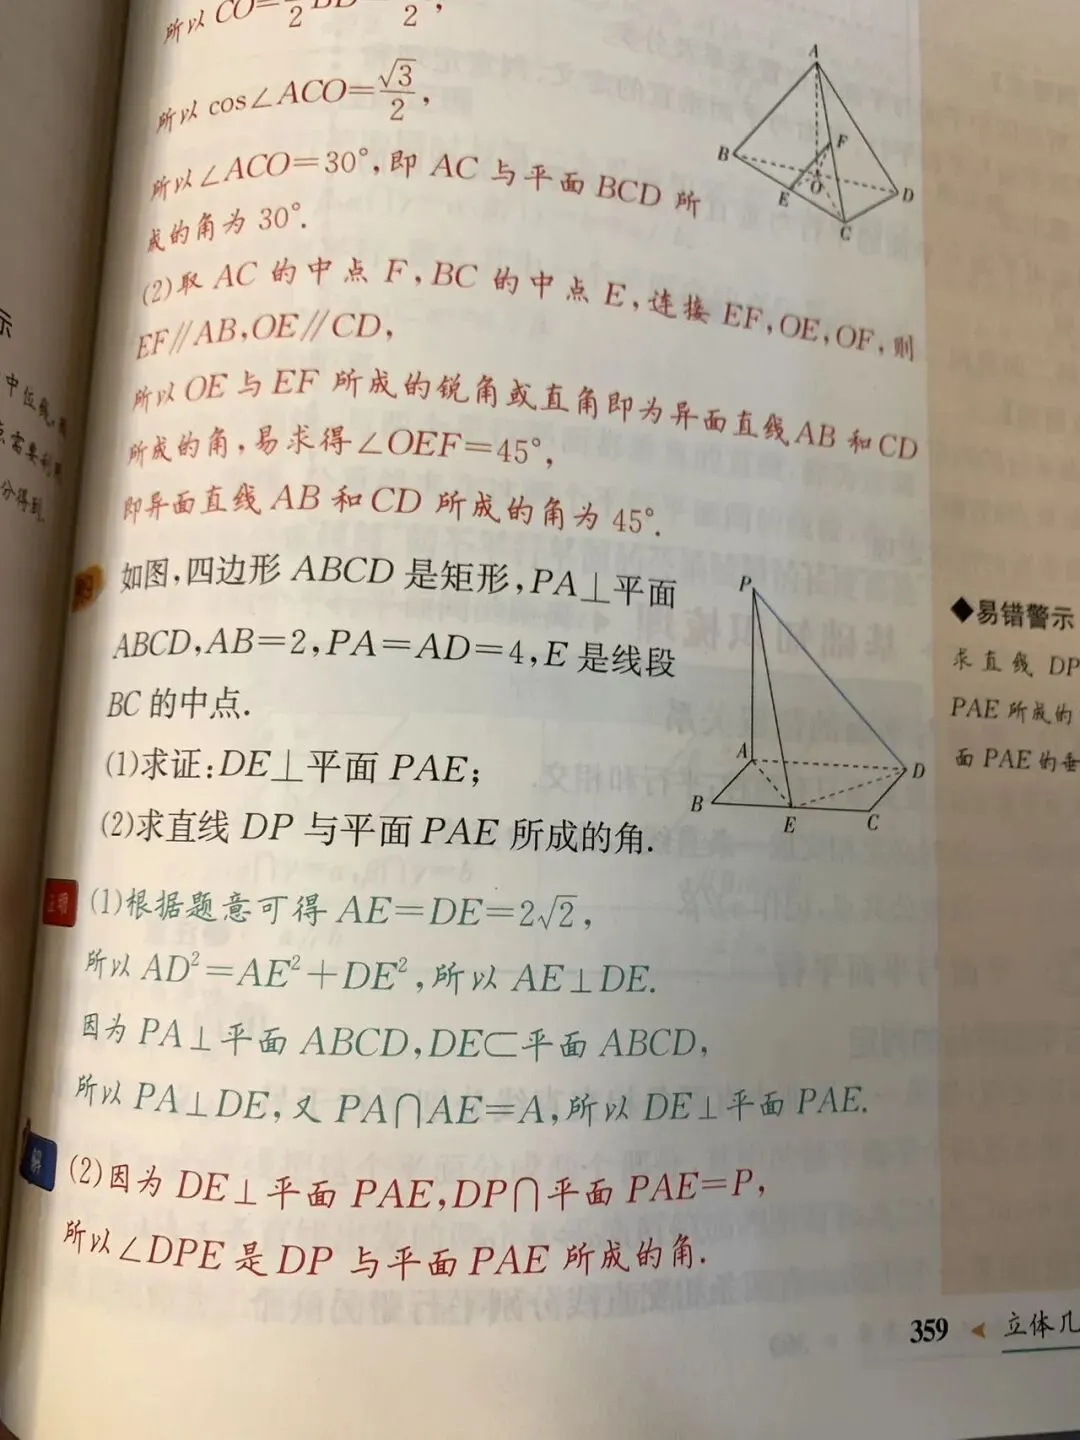 所以 CO=
2
2
所以 cos∠ACO=√3/2,
所以∠ACO=30°,即 AC 与平面 BCD 所
成的角为 30°.
A
B
F
O
E
D
C
(2)取 AC 的中点 F,BC 的中点 E,连接 EF,OE,OF,则
EF∥AB,OE∥CD,
所以 OE 与 EF 所成的锐角或直角即为异面直线 AB 和 CD
所成的角,易求得∠OEF=45°,
即异面直线 AB 和 CD 所成的角为 45°.
如图,四边形 ABCD 是矩形,PA⊥平面
ABCD,AB=2,PA=AD=4,E 是线段
BC 的中点.
(1)求证:DE⊥平面 PAE;
(2)求直线 DP 与平面 PAE 所成的角.
P
A
D
B
E
C
证明
(1)根据题意可得 AE=DE=2√2,
所以 AD²=AE²+DE²,所以 AE⊥DE.
因为 PA⊥平面 ABCD,DE⊂平面 ABCD,
所以 PA⊥DE,又 PA∩AE=A,所以 DE⊥平面 PAE.
解
(2)因为 DE⊥平面 PAE,DP∩平面 PAE=P,
所以∠DPE 是 DP 与平面 PAE 所成的角.
◆易错警示
求直线 DP
PAE 所成的
面 PAE 的垂
示
中位线
需要利用
分得到.
359 立体几